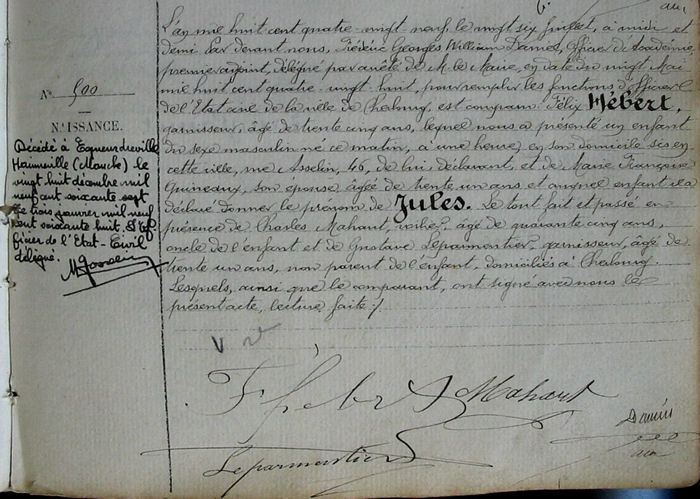 Nº 500
NAISSANCE.
Décédé à Equeurdreville
Hainneville (Manche) le
vingt huit décembre mil
neuf cent soixante sept
Le trois janvier mil neuf
cent soixante huit. L'Of
ficier de l'Etat-Civil
délégué.
L'an mil huit cent quatre-vingt-neuf, le vingt six Juillet, à midi et
demi Par devant nous, Frédéric Georges William Daniel, Officier d'Académie,
premier adjoint, délégué par arrêté de M. le Maire, en date du vingt Mai
mil huit cent quatre-vingt-huit, pour remplir les fonctions d'Officier
de l'Etat civil de la ville de Cherbourg, est comparu Félix Hébert,
garnisseur, âgé de trente cinq ans, lequel nous a présenté un enfant
du sexe masculin né ce matin, à une heure, en son domicile sis en
cette ville, rue Asselin, 46, de lui déclarant, et de Marie Françoise
son épouse âgée de trente un ans et auquel enfant il a
déclaré donner le prénom de Jules. Le tout fait et passé en
présence de Charles Mahaut, voilier, âgé de quarante cinq ans,
oncle de l'enfant et de Gustave Leparmentier, garnisseur, âgé de
trente un ans, non parent de l'enfant, domiciliés à Cherbourg.
Lesquels, ainsi que le comparant, ont signé avec nous le
présent acte, lecture faite /
F hebert
Mahaut
Leparmentier